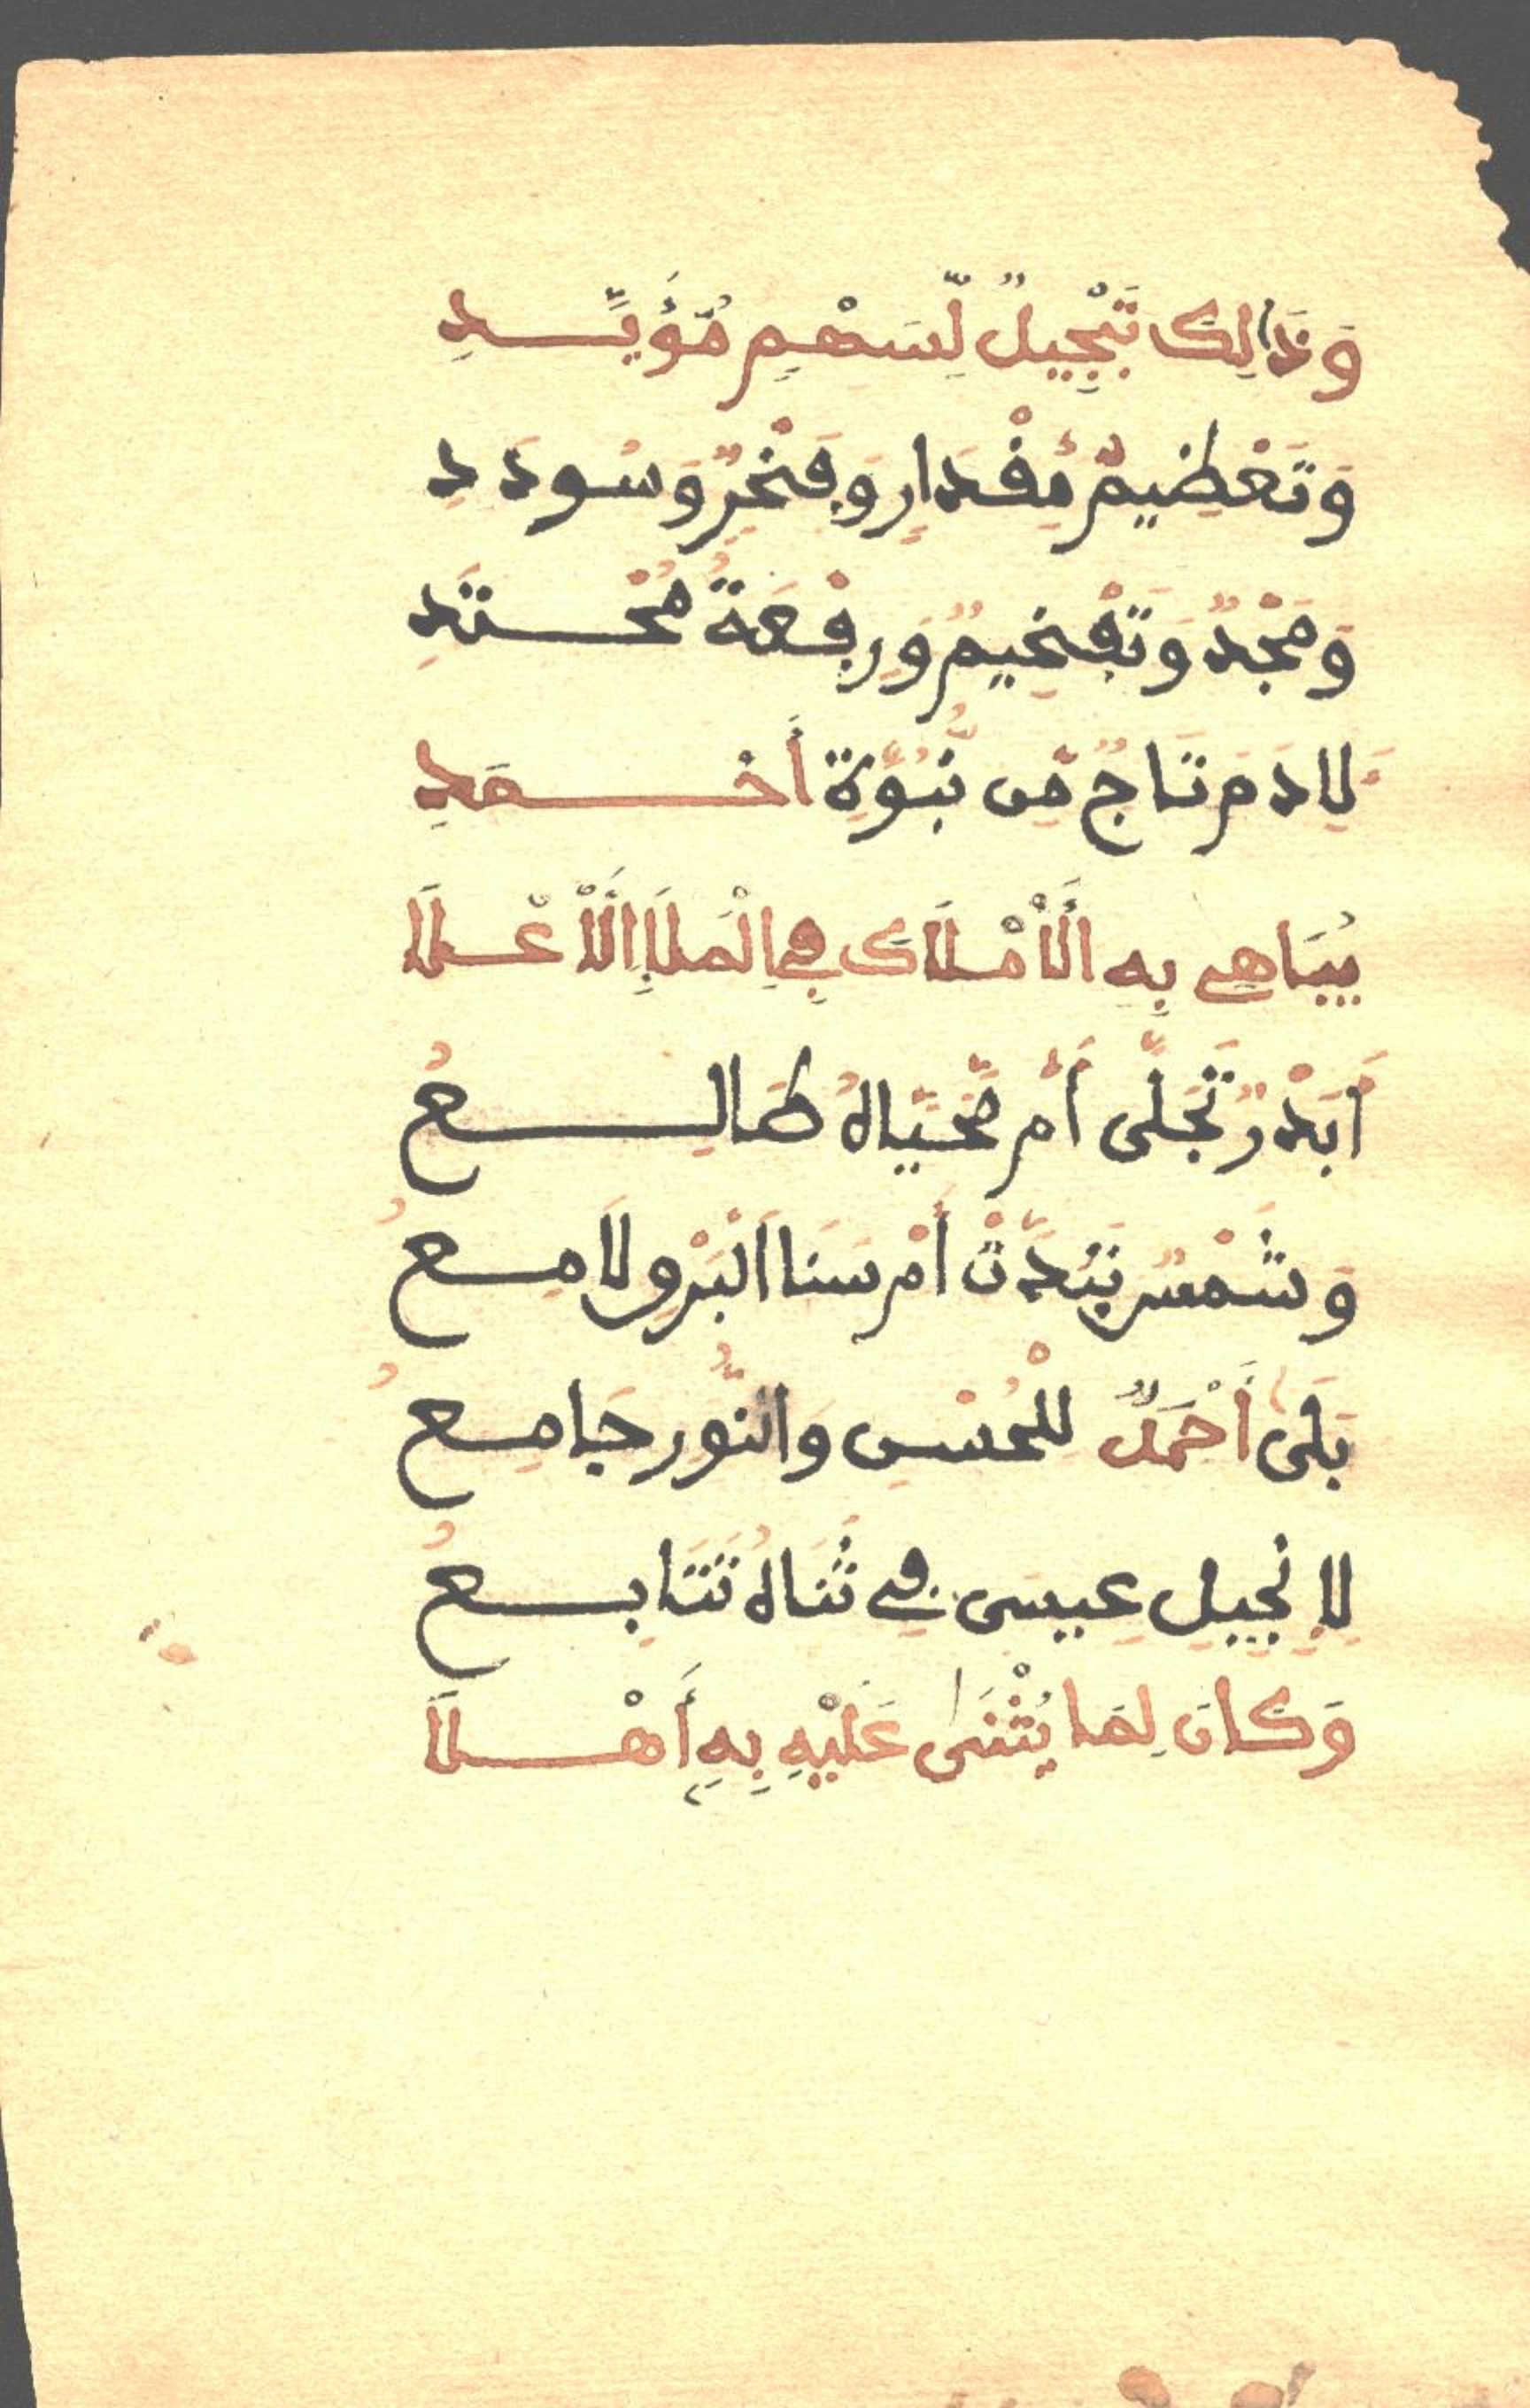 وَذَالِكَ تَبْجِيلٌ لِّسَهْمٍ مُّؤَيَّدِ
وَتَعْظِيمُ مِقْدَارٍ وَفَخْرٌ وَسُودَدِ
وَمَجْدٌ وَتَفْخِيمٌ وَرِفْعَةُ مُحْتَدِ
لِادَمَ تَاجٌ مِّن نُّبُوَّةِ أَحْمَدِ
يُبَاهِي بِهِ الْأَمْلَاكَ فِي الْمَلَإِ الْأَعْلَا
أَبَدْرٌ تَجَلَّى أَم مُّحَيَّاهُ طَالِعُ
وَشَمْسٌ تَبَدَّتْ أَمْ سَنَا الْبَرْقِ لَامِعُ
بَلَى أَحْمَدٌ لِلْحُسْنِ وَالنُّورِ جَامِعُ
لِإِنْجِيلِ عِيسَى فِي ثَنَاهُ تَتَابِعُ
وَكَانَ لِمَا يُثْنَى عَلَيْهِ بِهِ أَهْلَا